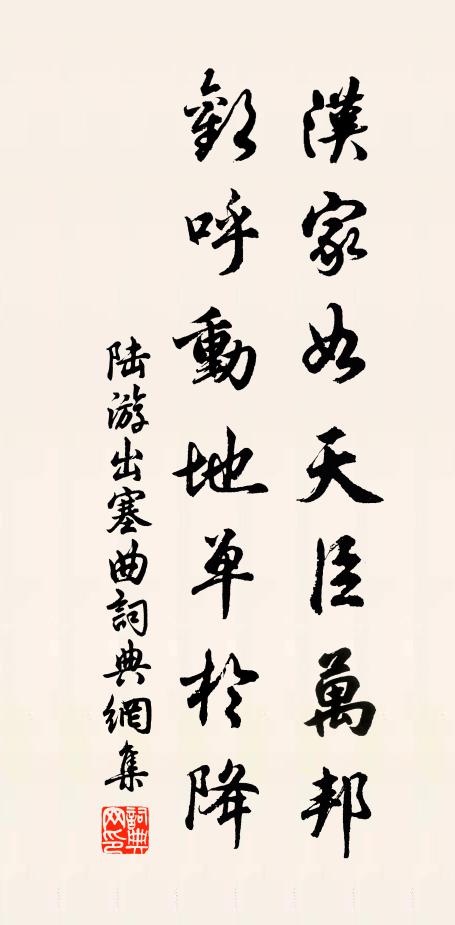 漢家如天臣萬邦
歡呼動地單於降
陸游出塞曲詞典網集
詞典
网印